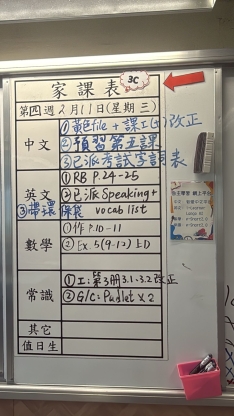 家課表 3C
第四週 2月11日(星期三)
中文
①黃色file + 課工(5)改正
②預習第五課
③已派考試字詞表
英文
①RB P.24-25
②已派Speaking+
vocab list
③帶環保袋
數學
①作P.10-11
②Ex.5(9-12) LD
常識
①工:第3冊3.1-3.2改正
②G/C: Padlet x 2
其它
值日生